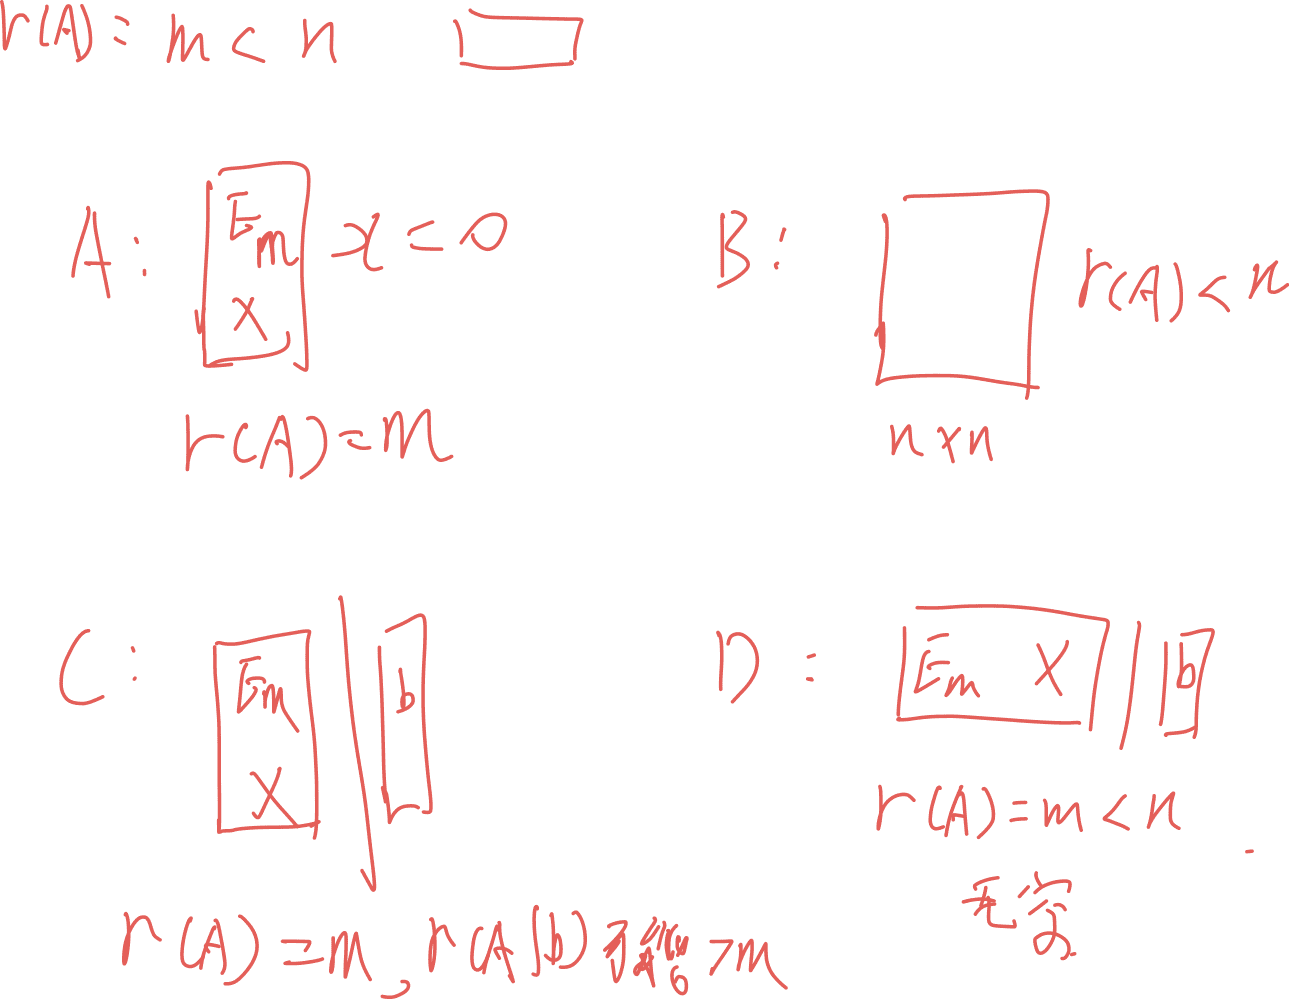 r(A)= m < n
A: Em x = 0
X
r(A)=m
B: r(A) < n
n×n
C: Em b
X
r(A)=m, r(A|b) > m
D: Em X b
r(A)=m<n
无穷